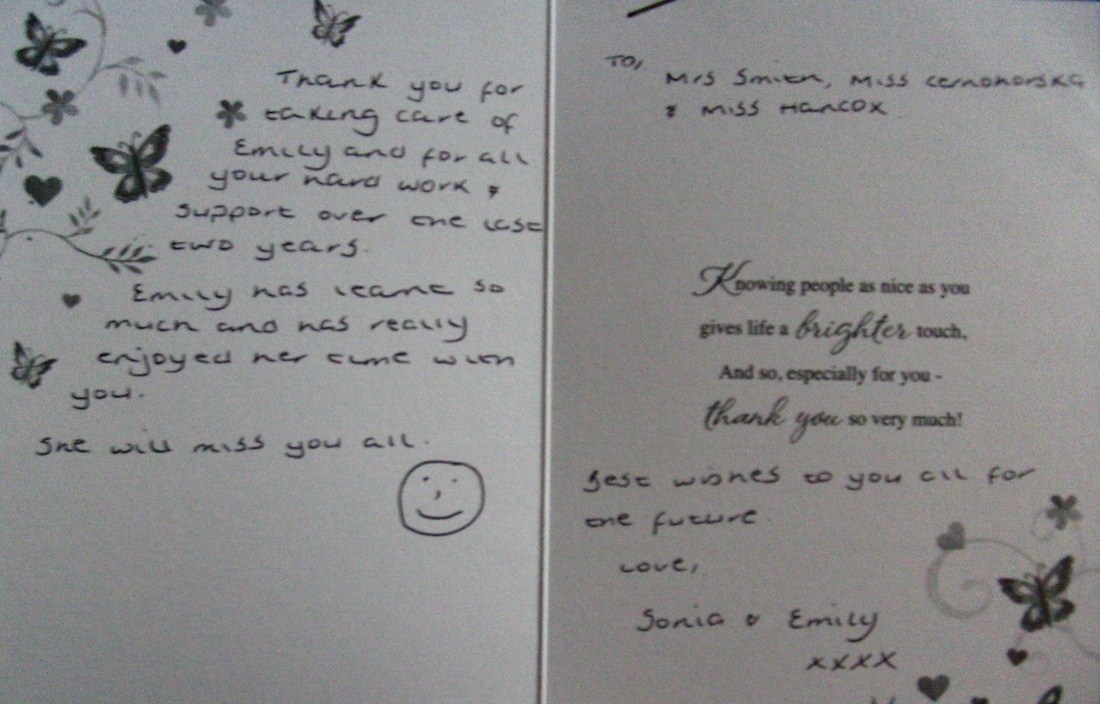 Thank you for
taking care of
Emily and for all
your hard work &
support over the last
two years.
Emily has learnt so
much and has really
enjoyed her time with
you.
She will miss you all.
To,
Mrs Smith, Miss Cernohorska
& Miss Hancox
Knowing people as nice as you
gives life a brighter touch,
And so, especially for you -
thank you so very much!
Best wishes to you all for
the future.
Love,
Sonia & Emily
xxxx